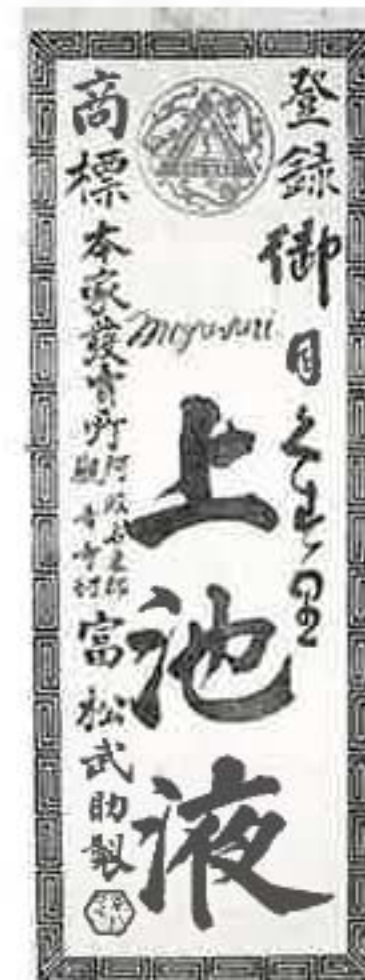 登録御目くすり
上池液
商標本家發賣所
阿波名東郡
觀音寺村
富松武助製